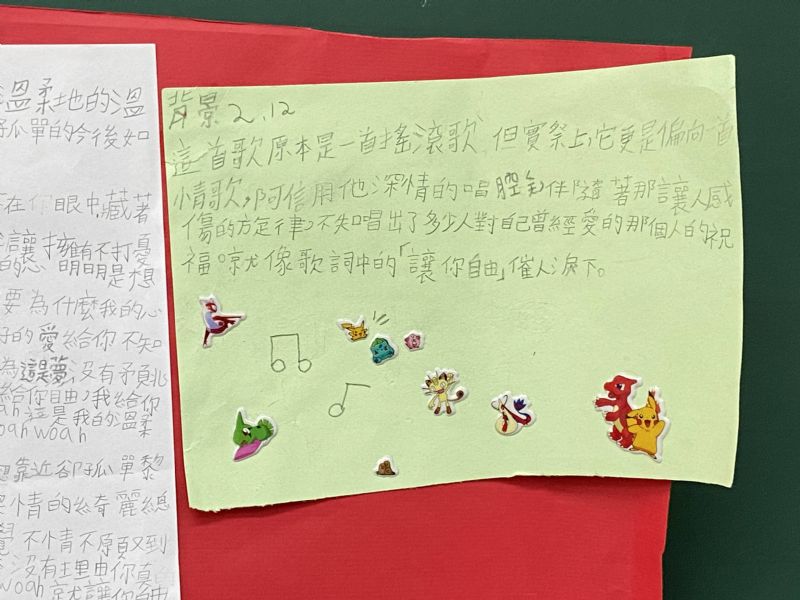 溫柔地的溫
孤單的今後如
在你眼中藏著
讓擁有不打憂
的心 明明是想
要為什麼我的心
好的愛給你 不知
為這是夢 沒有矛頁兆
給你自由 我給你
這是我的溫柔
woah
靠近卻孤單黎
情的綺麗總
覺 不情不願又到
沒有理由你真的
woah 就讓你自由
背景2.12
這一首歌原本是一首搖滾歌,但實祭上它更是偏向一首
情歌,阿信用他深情的唱腔,伴隨著那讓人感
傷的方定律,不失唱出了多少人對自己曾經愛的那個人的祝
福。就像歌詞中的「讓你自由」催人淚下。